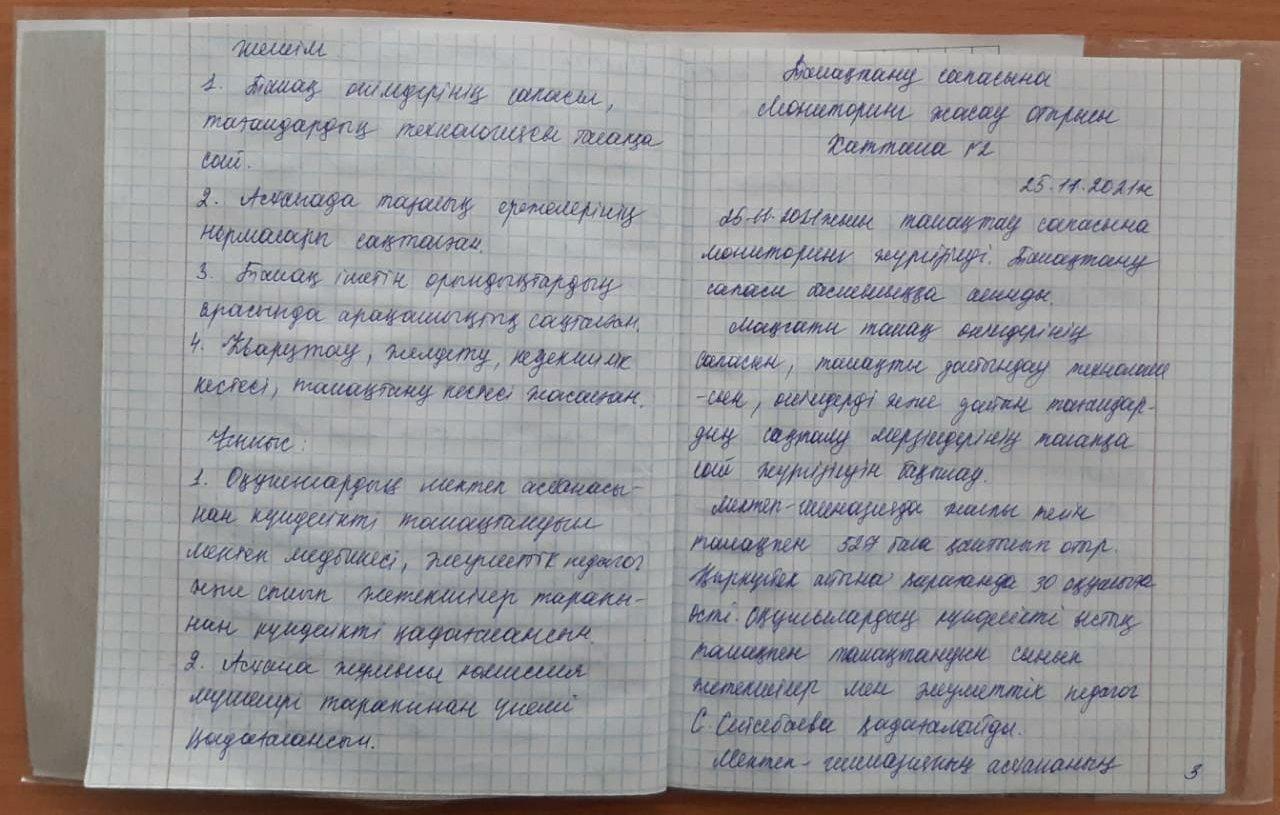 Шешім
1. Тамақ өнімдерінің сапасы,
тағамдардың технологиясы талапқа
сай.
2. Асханада тазалық ережелерінің
нормалары сақталған.
3. Тамақ ішетін орындықтардың
арасында арақашықтық сақталған.
4. Кварцтау, желдету, кезекшілік
кестесі, тамақтану кестесі жасалған.
Ұсыныс:
1. Оқушылардың мектеп асханасы-
нан күнделікті тамақтандыын
мектеп медбикесі, әлеуметтік педагог
және сынып жетекшілер тарапы-
нан күнделікті қадағалансын.
2. Асхана жұмысы комиссия
мүшелері тарапынан үнемі
қадағалансын.
Тамақтану сапасына
Мониторинг жасау отырысы
Хаттама №2
25.11.2021ж
25.11.2021жылы тамақтау сапасына
мониторинг жүргізілді. Тамақтану
сапасы басшылыққа алынды.
Мақсаты тамақ өнімдерінің
сапасын, тамақты дайындау технология
-сын, өнімдерді және дайын тағамдар-
дың сақталу мерзімдерінің талапқа
сай жүргізілуін бақылау.
Мектеп-гимназияда жалпы тегін
тамақпен 527 бала қамтылып отыр.
Қыркүйек айына қарағанда 30 оқушыға
өсті. Оқушылардың күнделікті ыстық
тамақпен тамақтандыын сынып
жетекшілер мен әлеуметтік педагог
С. Сейсебаева қадағалайды.
Мектеп-гимназияның асхананың
3